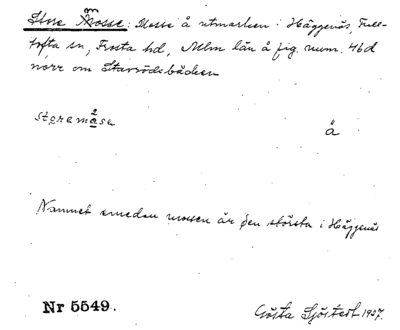 Stora Mosse: Mosse å utmarken i Häggenäs, Full-
tofta sn, Frosta hd, Mlm län å fig. num. 46d
norr om Starrödsbäcken
storemåse
å
Namnet emedan mossen är den största i Häggenäs
Nr 5549.
Gösta Sjöstedt 1927.